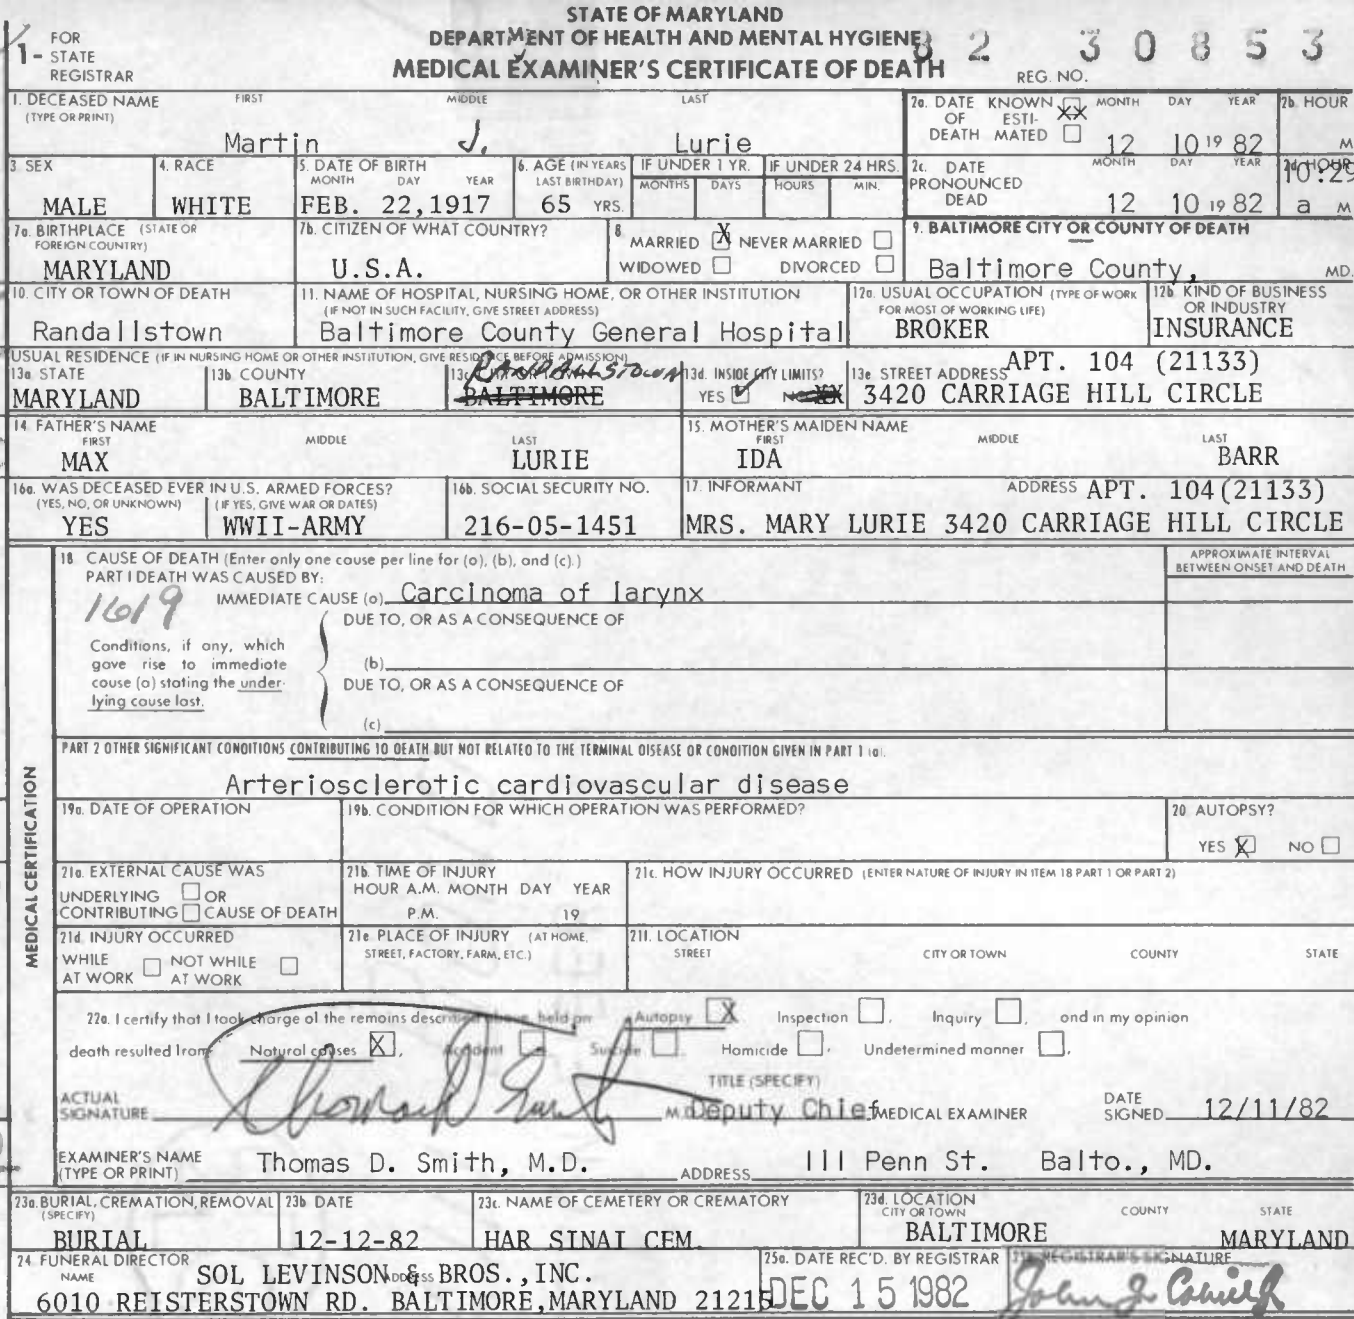 STATE OF MARYLAND
DEPARTMENT OF HEALTH AND MENTAL HYGIENE
MEDICAL EXAMINER'S CERTIFICATE OF DEATH
1- FOR STATE REGISTRAR
REG. NO. 82 30853
1. DECEASED NAME (TYPE OR PRINT) FIRST MIDDLE LAST
Martin J. Lurie
2a. DATE OF DEATH KNOWN XX ESTIMATED MONTH DAY YEAR
12 10 19 82
2b. HOUR M
3 SEX
MALE
4. RACE
WHITE
5. DATE OF BIRTH MONTH DAY YEAR
FEB. 22,1917
6. AGE (IN YEARS LAST BIRTHDAY)
65 YRS.
IF UNDER 1 YR. MONTHS DAYS
IF UNDER 24 HRS. HOURS MIN.
2c. DATE PRONOUNCED DEAD MONTH DAY YEAR
12 10 19 82
2d. HOUR
10:29
a M
7a. BIRTHPLACE (STATE OR FOREIGN COUNTRY)
MARYLAND
7b. CITIZEN OF WHAT COUNTRY?
U.S.A.
8. MARRIED X NEVER MARRIED
WIDOWED DIVORCED
9. BALTIMORE CITY OR COUNTY OF DEATH
Baltimore County, MD.
10. CITY OR TOWN OF DEATH
Randallstown
11. NAME OF HOSPITAL, NURSING HOME, OR OTHER INSTITUTION
(IF NOT IN SUCH FACILITY, GIVE STREET ADDRESS)
Baltimore County General Hospital
12a. USUAL OCCUPATION (TYPE OF WORK FOR MOST OF WORKING LIFE)
BROKER
12b. KIND OF BUSINESS OR INDUSTRY
INSURANCE
USUAL RESIDENCE (IF IN NURSING HOME OR OTHER INSTITUTION, GIVE RESIDENCE BEFORE ADMISSION)
13a STATE
MARYLAND
13b COUNTY
BALTIMORE
13c RANDALLSTOWN
BALTIMORE
13d. INSIDE CITY LIMITS?
YES ✓ NO XX
13e STREET ADDRESS APT. 104 (21133)
3420 CARRIAGE HILL CIRCLE
14. FATHER'S NAME FIRST MIDDLE LAST
MAX LURIE
15. MOTHER'S MAIDEN NAME FIRST MIDDLE LAST
IDA BARR
16a. WAS DECEASED EVER IN U.S. ARMED FORCES?
(YES, NO, OR UNKNOWN) (IF YES, GIVE WAR OR DATES)
YES WWII-ARMY
16b. SOCIAL SECURITY NO.
216-05-1451
17. INFORMANT ADDRESS APT. 104(21133)
MRS. MARY LURIE 3420 CARRIAGE HILL CIRCLE
MEDICAL CERTIFICATION
18 CAUSE OF DEATH (Enter only one cause per line for (a), (b), and (c).)
PART I DEATH WAS CAUSED BY:
APPROXIMATE INTERVAL BETWEEN ONSET AND DEATH
1619
IMMEDIATE CAUSE (a) Carcinoma of larynx
DUE TO, OR AS A CONSEQUENCE OF
Conditions, if any, which gave rise to immediate cause (a) stating the underlying cause last.
(b)
DUE TO, OR AS A CONSEQUENCE OF
(c)
PART 2 OTHER SIGNIFICANT CONDITIONS CONTRIBUTING TO DEATH BUT NOT RELATED TO THE TERMINAL DISEASE OR CONDITION GIVEN IN PART 1 (a).
Arteriosclerotic cardiovascular disease
19a. DATE OF OPERATION
19b. CONDITION FOR WHICH OPERATION WAS PERFORMED?
20 AUTOPSY?
YES X NO
21a. EXTERNAL CAUSE WAS
UNDERLYING OR
CONTRIBUTING CAUSE OF DEATH
21b. TIME OF INJURY
HOUR A.M. MONTH DAY YEAR
P.M. 19
21c. HOW INJURY OCCURRED (ENTER NATURE OF INJURY IN ITEM 18 PART 1 OR PART 2)
21d INJURY OCCURRED
WHILE AT WORK NOT WHILE AT WORK
21e PLACE OF INJURY (AT HOME, STREET, FACTORY, FARM, ETC.)
21f. LOCATION
STREET CITY OR TOWN COUNTY STATE
22a. I certify that I took charge of the remains described above, held an Autopsy X Inspection , Inquiry , and in my opinion
death resulted from Natural causes X, Accident Suicide . Homicide . Undetermined manner .
ACTUAL SIGNATURE Thomas D Smith M.D. TITLE (SPECIFY) Deputy Chief MEDICAL EXAMINER DATE SIGNED 12/11/82
EXAMINER'S NAME (TYPE OR PRINT) Thomas D. Smith, M.D. ADDRESS 111 Penn St. Balto., MD.
23a. BURIAL, CREMATION, REMOVAL (SPECIFY)
BURIAL
23b DATE
12-12-82
23c. NAME OF CEMETERY OR CREMATORY
HAR SINAI CEM.
23d. LOCATION CITY OR TOWN COUNTY STATE
BALTIMORE MARYLAND
24 FUNERAL DIRECTOR
NAME SOL LEVINSON & BROS.,INC. ADDRESS
6010 REISTERSTOWN RD. BALTIMORE,MARYLAND 21215
25a. DATE REC'D. BY REGISTRAR
DEC 15 1982
REGISTRAR'S SIGNATURE